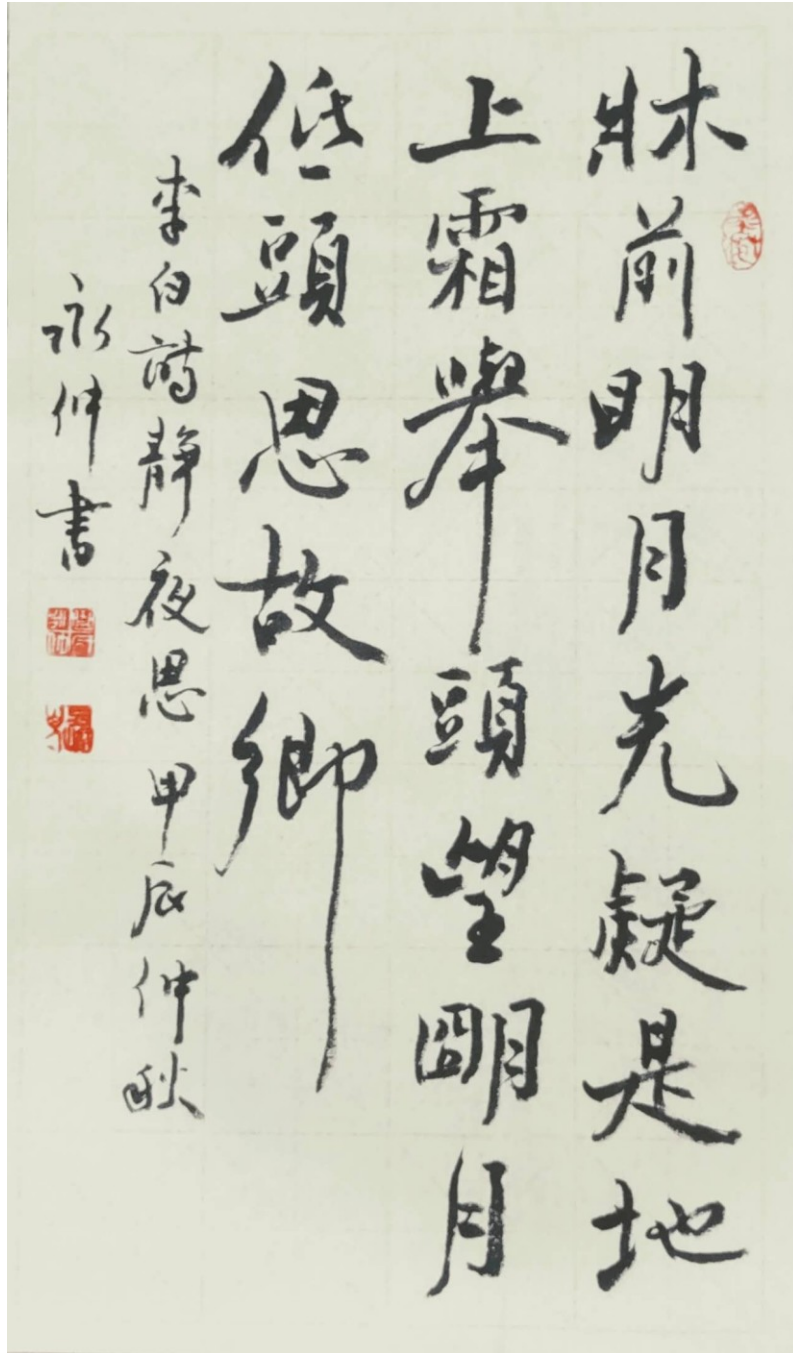 牀前明月光疑是地
上霜舉頭望朙月
低頭思故鄉
李白詩靜夜思甲辰仲秋
永仲書